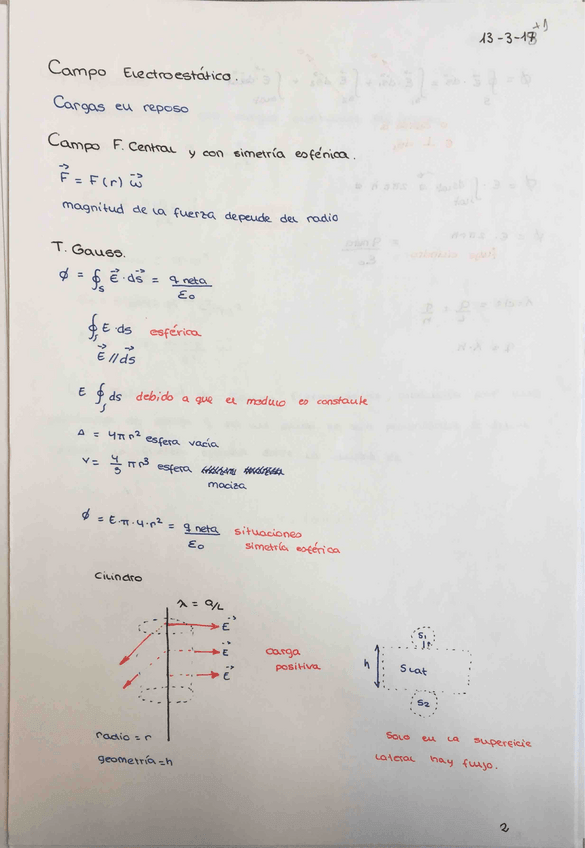 13-3-18
Campo Electroestático.
Cargas en reposo
Campo F. Central y con simetría esférica.
F = F(r) ω
magnitud de la fuerza depende del radio
T. Gauss.
φ = ∮s E · ds = q neta / ε₀
∮s E · ds esférica
E // ds
E ∮s ds debido a que el modulo es constante
A = 4πr² esfera vacía
V = 4/3 πr³ esfera
maciza
φ = E·π·4·r² = q neta / ε₀ situaciones
simetría esférica
Cilindro
λ = Q/L
E
E
E
carga
positiva
h
S1
r
Slat
S2
radio = r
geometría = h
Solo en la superficie
lateral hay flujo.
2